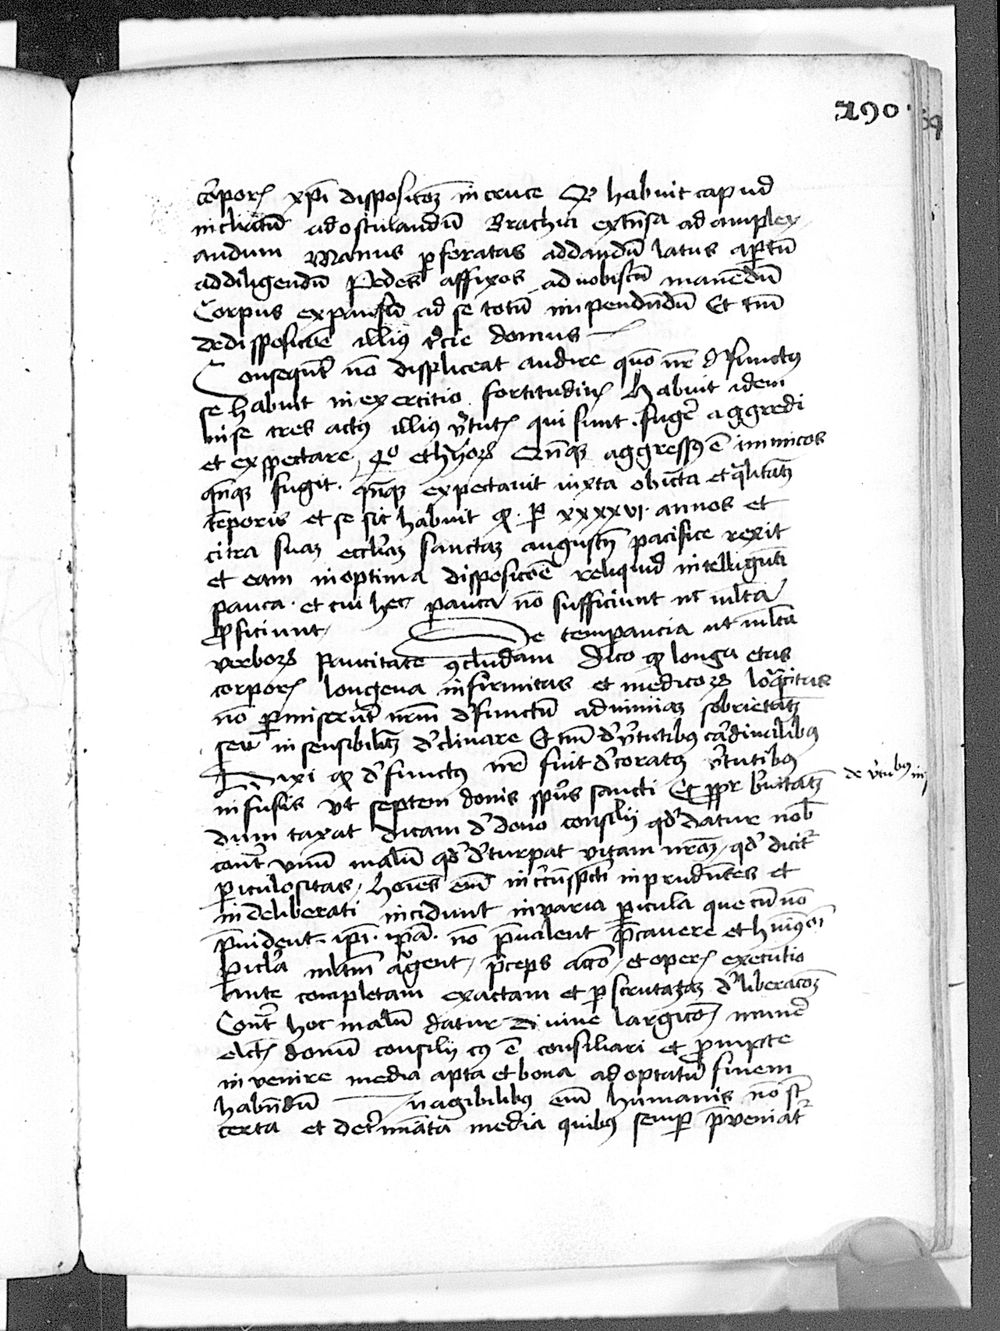 190
corporis xpi dispositoem in cruce Qui habuit capud
inclinatum ad osculandum Brachia extensa ad amplex
andum Manus perforatas ad dandum latus apertum
ad diligendum Pedes affixos ad nobiscum manendum
Corpus expansum ad se totum impendendum Et tantum
de dispositione illius tercie domus
Consequenter non displiceat audire quomodo noster defunctus
se habuit in exercitio fortitudinis Habuit idem
in se tres actus illius virtutis qui sunt fugere aggredi
et expectare aggressus est inimicos
quandoque fugit quandoque expectavit iuxta et qualitatem
temporis et se sic habuit quod per xxxxvi annos et
citra suam ecclesiam sanctam pacifice rexit
et eam in optima dispositione reliquid intelligenti
pauca et cui hec pauca non sufficiunt nec multa
proficiunt De temperancia ut multa
verborum paucitate concludam dico quod longa etas
corporis longeva infirmitas et medicorum
non permiserunt nostrum defunctum ad nimiam sobrietatem
seu insensibilitatem declinare Et tantum de virtutibus cardinalibus
Dixi quod defunctus noster fuit decoratus virtutibus
infusis ut septem donis spiritus sancti Et propter brevitatem
dum taxat dicam de dono consilii quod datur nobis
contra unum malum quod deturpat vitam nostram quod dicitur
periculositas homines enim incircumspecti inprudentes et
indeliberati incidunt in varia pericula que cum non
prevident ipsi ipsa non prevalent precavere et huiusmodi
pericula multum preceps actio et operis executio
ante completam exactam et perscrutatam deliberacionem
Contra hoc malum datur divine largicionis munere
electis donum consilii cuius est consiliari et prompte
invenire media apta et bona ad optatum finem
habendum In agibilibus enim humanis non sunt
certa et determinata media quibus semper perveniatur
de virtutibus